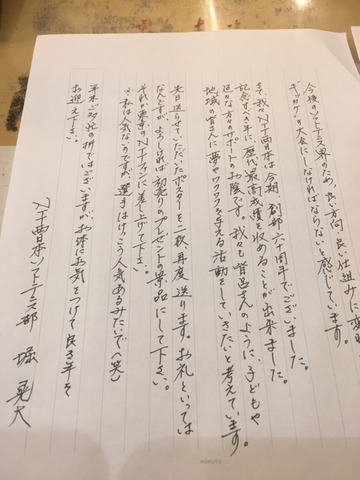 今後のソフトテニス界のため、良い方向、良い仕組みに変
キッカケの大会にしなければならないと感じています。
さて、我々NTT西日本は今期、創部六十周年でございました。
記念すべき年に歴代最高成績を収めることが出来ました。
様々な方々のサポートのお陰です。我々も皆呂さんのように、子どもや
地域の皆さんに夢やワクワクを与える活動をしていきたいと考えています。
先日送らせていただいたポスターを二枚、再度送ります。お礼といっては
なんですが、よろしければ初売りのプレゼント景品にして下さい。
それか東京のNTTファンに差し上げて下さい。
※私は人気ないのですが、選手はけっこう人気あるみたいで(笑)
年末ご多忙の折ではございますが、お体にお気をつけて良き年を
お迎え下さい。
NTT西日本ソフトテニス部 堀 晃大
KOKUYO